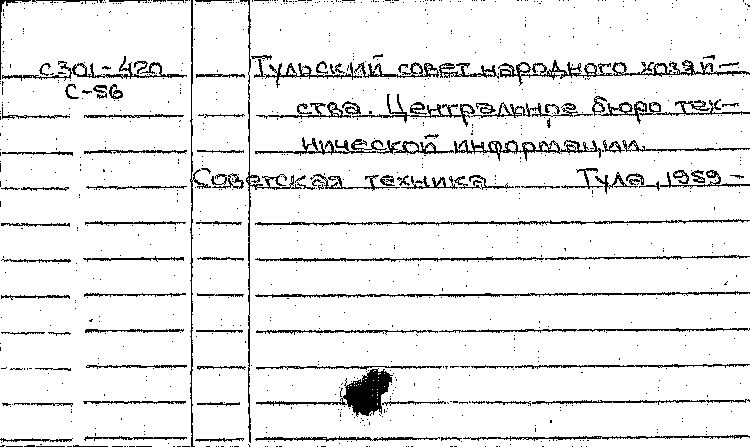 С301-420 Тульский совет народного хозяй-
С-56
ства. Центральное бюро тех-
нической информации.
Советская техника Тула, 1959-